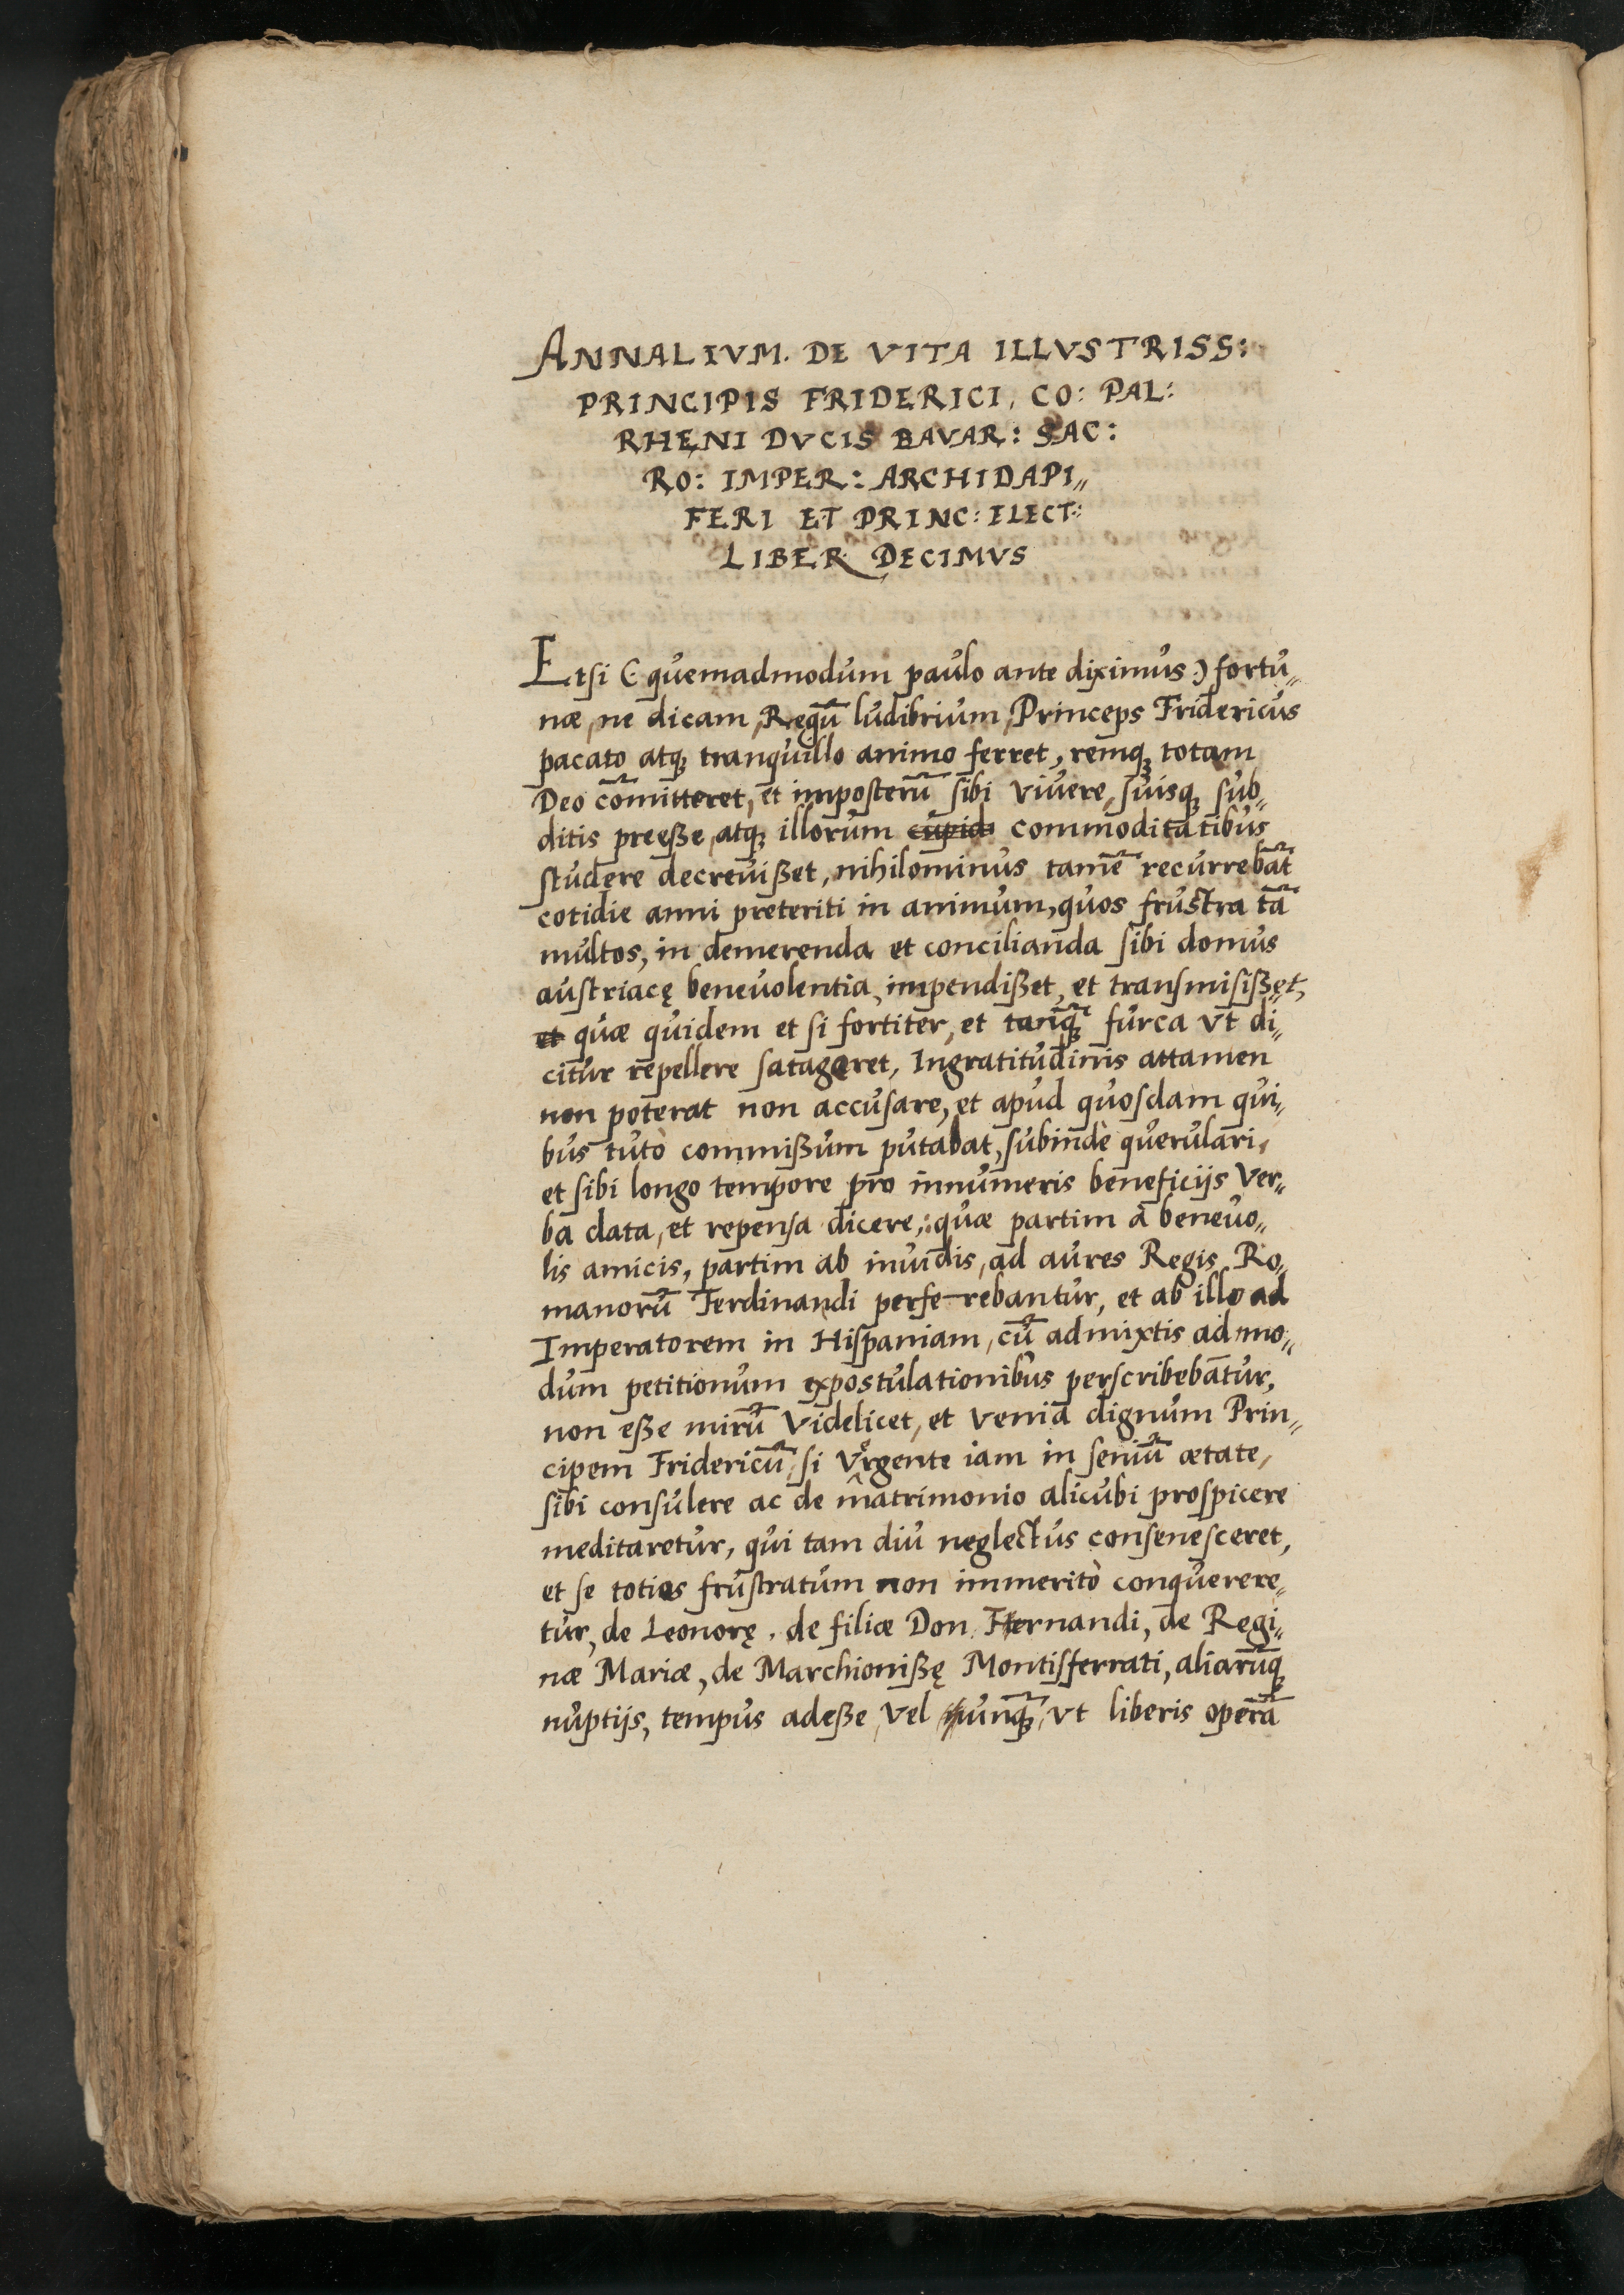 ANNALIVM. DE VITA ILLVSTRISS:
PRINCIPIS FRIDERICI, CO: PAL:
RHENI DVCIS BAVAR: SAC:
RO: IMPER: ARCHIDAPI„
FERI ET PRINC: ELECT:
LIBER DECIMVS
Etsi (quemadmodum paulo ante diximus) fortu„
næ, ne dicam, Regū ludibrium, Princeps Fridericus
pacato atqꝫ tranquillo animo ferret, remqꝫ totam
Deo cōmitteret, et imposterū sibi viuere, suisqꝫ sub„
ditis preesse, atqꝫ illorum cupid commoditatibus
studere decreuisset, nihilominus tamē recurrebāt
cotidie anni preteriti in animum, quos frustra tā
multos, in demerenda et concilianda sibi domus
austriacę beneuolentia, impendisset, et transmisisset,
et quæ quidem et si fortiter, et tanq̄ꝫ furca vt di„
citur repellere satageret, Ingratitudinis attamen
non poterat non accusare, et apud quosdam qui„
bus tutò commissum putabat, subindè querulari,
et sibi longo tempore pro innumeris beneficijs ver„
ba data, et repensa dicere,: quæ partim à beneuo„
lis amicis, partim ab inuidis, ad aures Regis Ro„
manorū Ferdinandi perferebantur, et ab illo ad
Imperatorem in Hispaniam, cū admixtis admo„
dum petitionum expostulationibus perscribebātur,
non esse mirū videlicet, et veniā dignum Prin„
cipem Fridericū, si vrgente iam in seniū ætate,
sibi consulere ac de matrimonio alicubi prospicere
meditaretur, qui tam diu neglectus consenesceret,
et se toties frustratum non immeritò conquerere„
tur, de Leonorę. de filiæ Don Fernandi, de Regi„
næ Mariæ, de Marchionissę Montisferrati, aliarūqꝫ
nuptijs, tempus adesse, vel nunq̄ꝫ, vt liberis operā